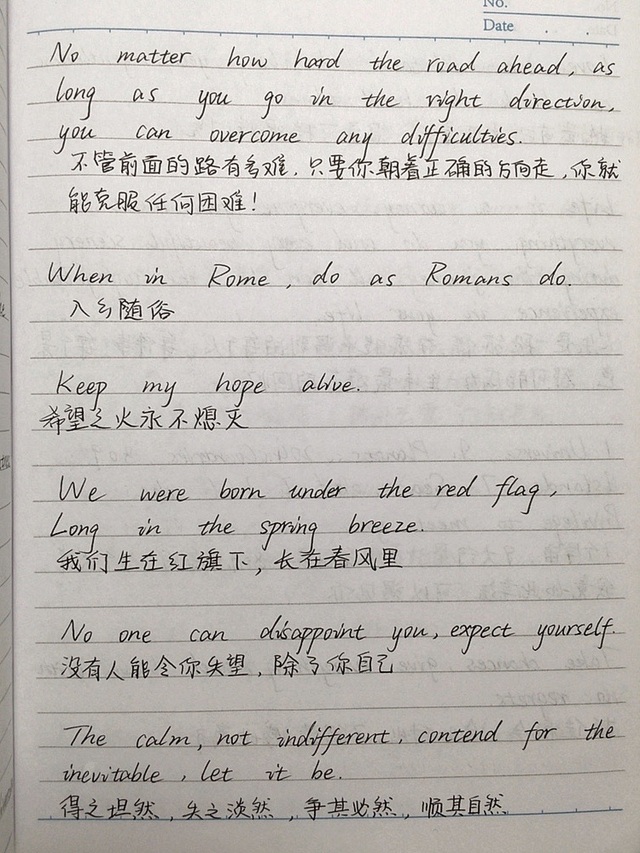 No.
Date
No matter how hard the road ahead, as
long as you go in the right direction,
you can overcome any difficulties.
不管前面的路有多难，只要你朝着正确的方向走，你就
能克服任何困难！
When in Rome, do as Romans do.
入乡随俗
Keep my hope alive.
希望之火永不熄灭
We were born under the red flag,
Long in the spring breeze.
我们生在红旗下，长在春风里
No one can disappoint you, expect yourself.
没有人能令你失望，除了你自己
The calm, not indifferent, contend for the
inevitable, let it be.
得之坦然，失之淡然，争其必然，顺其自然